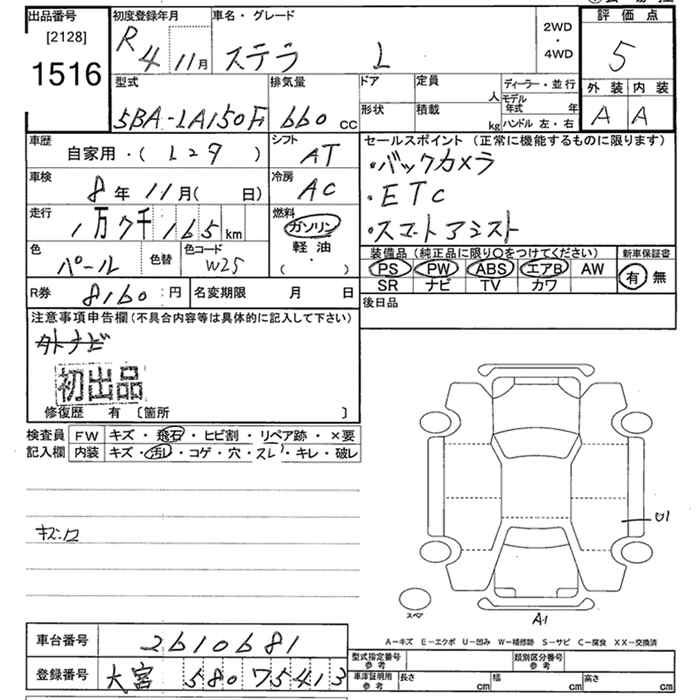 出品番号 初度登録年月 車名・グレード 2WD ・ 4WD 評価点
[2128] R 4 11月 ステラ L 5
1516
型式 排気量 ドア 定員 人 ディーラー・並行 外装 内装
5BA-LA150F 660 CC 形状 積載 kg モデル年式 年 ハンドル 左・右 A A
車歴 シフト セールスポイント(正常に機能するものに限ります)
自家用・( レンタ ) AT ・バックカメラ
車検 冷房 ・ETC
8年11月( 日) AC ・スマートアシスト
走行 燃料
1万7千165km ガソリン
軽油
( ・ )
色 色替 色コード 装備品(純正品に限り○をつけてください) 新車保証書
パール W25 PS PW ABS エアB AW 有 無
SR ナビ TV カワ
R券 8160円 名変期限 月 日 後日品
注意事項申告欄(不具合内容等は具体的に記入して下さい)
外ナビ
初出品
修復歴 有 〔箇所 〕
検査員 FW キズ・飛石・ヒビ割・リペア跡・×要
記入欄 内装 キズ・汚レ・コゲ・穴・スレ・キレ・破レ
U1
スペア A1
A-キズ E-エクボ U-凹み W-補修跡 S-サビ C-腐食 XX-交換済
車台番号 2610681 型式指定番号 参考 類別区分番号 参考
登録番号 大宮 580 75413 車庫証明用 参考 長さ cm 幅 cm 高さ cm